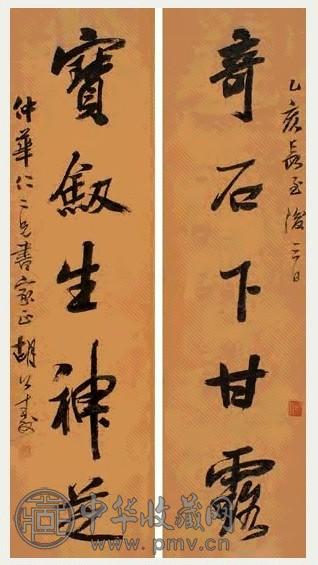 乙亥長至後三日
奇石下甘露
寶劔生神芝
仲華仁二兄書家正 胡公壽
中华收藏网
www.pmv.cn